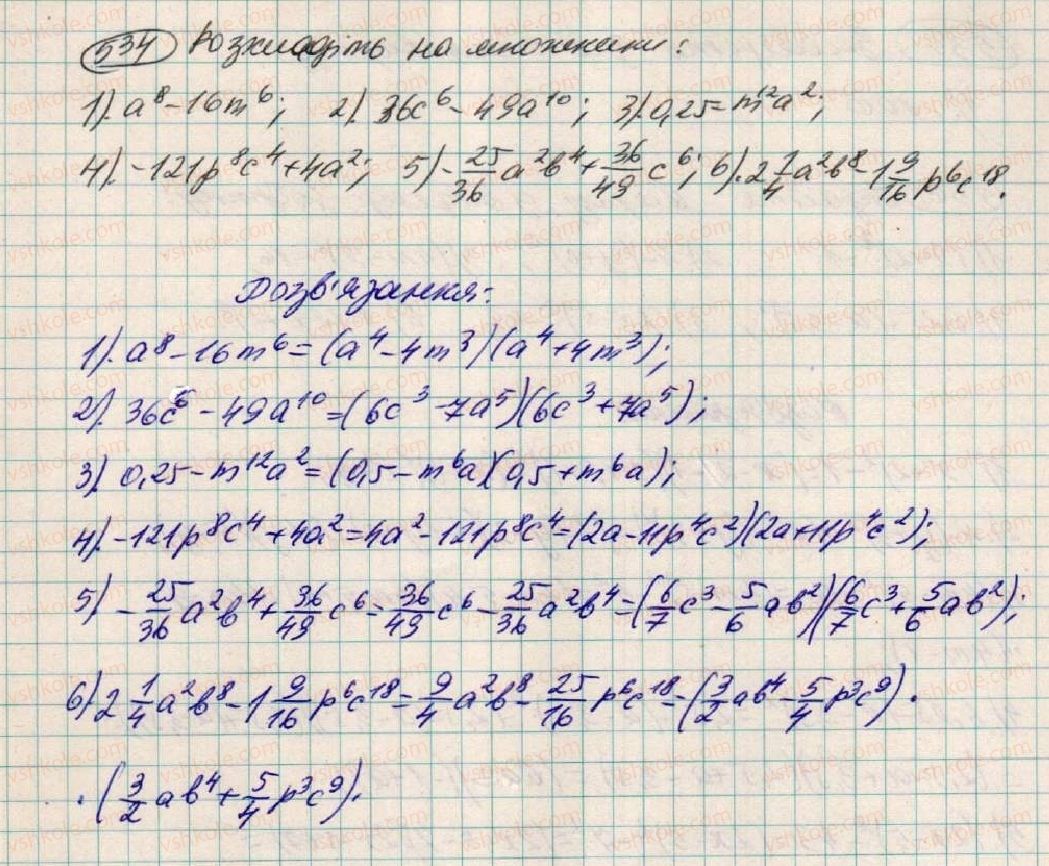 534 Розкладіть на множники:
1). a⁸-16m⁶; 2). 36c⁶-49a¹⁰; 3). 0,25-m¹²a²;
4). -121p⁸c⁴+4a²; 5) -25/36 a²b⁴+36/49 c⁶; 6). 2 1/4 a²b⁸-1 9/16 p⁶c¹⁸.
Розв'язання:
1). a⁸-16m⁶=(a⁴-4m³)(a⁴+4m³);
2). 36c⁶-49a¹⁰=(6c³-7a⁵)(6c³+7a⁵);
3). 0,25-m¹²a²=(0,5-m⁶a)(0,5+m⁶a);
4). -121p⁸c⁴+4a²=4a²-121p⁸c⁴=(2a-11p⁴c²)(2a+11p⁴c²);
5) -25/36 a²b⁴+36/49 c⁶=36/49 c⁶-25/36 a²b⁴=(6/7 c³-5/6 ab²)(6/7 c³+5/6 ab²);
6) 2 1/4 a²b⁸-1 9/16 p⁶c¹⁸=9/4 a²b⁸-25/16 p⁶c¹⁸=(3/2 ab⁴-5/4 p³c⁹)·
·(3/2 ab⁴+5/4 p³c⁹).